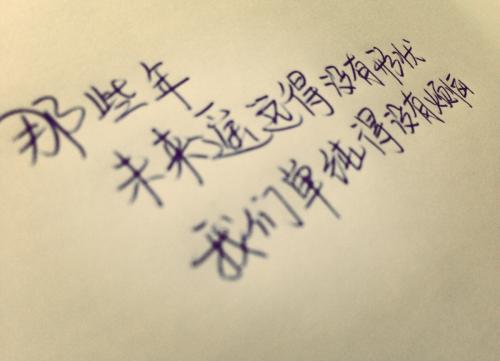 那些年
未来遥远得没有形状
我们单纯得没有烦恼